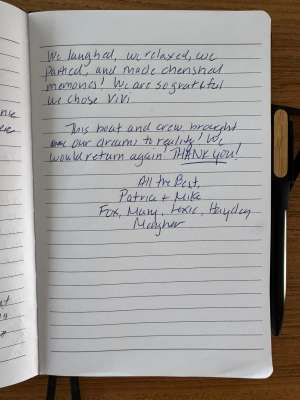 We laughed, we relaxed, we
partied, and made cherished
memories! We are so grateful
we chose ViVi
This boat and crew brought
our dreams to reality! We
would return again THANK you!
All the Best,
Patrice + Mike
Fox, Mary, Lexie, Hayden